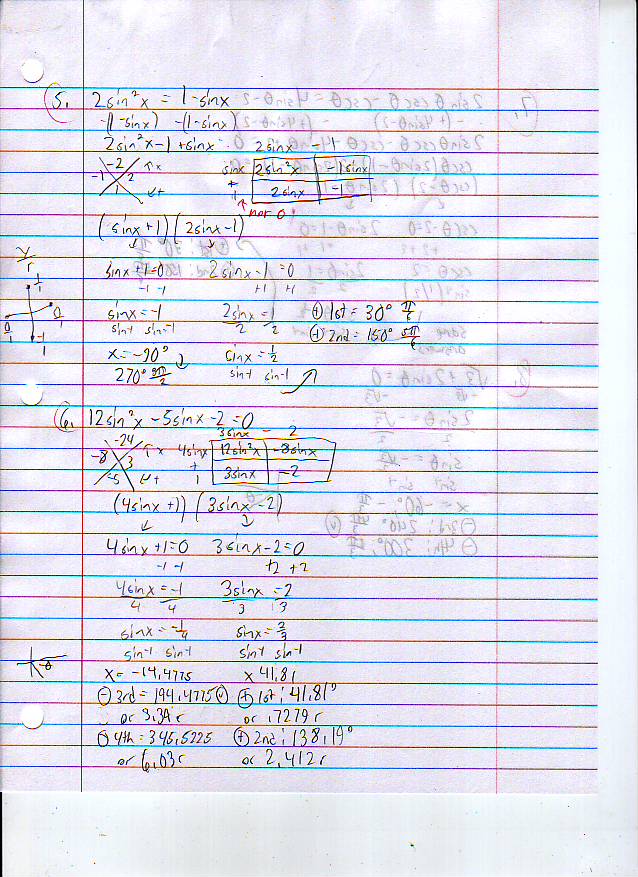 5. 2sin²x = 1-sinx
-(1-sinx) -(1-sinx)
2sin²x-1+sinx 2sinx -1
-2 sinx 2sin²x -1sinx
-1 2 +
1 1 2sinx -1
not 0!
(sinx+1)(2sinx-1)
y/r
sinx+1=0 2sinx-1=0
-1 -1 +1 +1
sinx=-1 2sinx=1 (+) 1st = 30° π/6
sin-1 sin-1 2 2 (+) 2nd = 150° 5π/6
x=-90° sinx=1/2
270° sin-1 sin-1
6. 12sin²x-5sinx-2=0
3sinx - 2
-24 4sinx 12sin²x -8sinx
-8 3 +
-5 1 3sinx -2
(4sinx+1)(3sinx-2)
4sinx+1=0 3sinx-2=0
-1 -1 +2 +2
4sinx=-1 3sinx=2
4 4 3 3
sinx=-1/4 sinx=2/3
sin-1 sin-1 sin-1 sin-1
x=-14.4775 x 41.81
(-) 3rd = 194.4775 (+) 1st: 41.81°
or 3.39 r or .7279 r
(-) 4th = 345.5225 (+) 2nd: 138.19°
or 6.03r or 2.412r